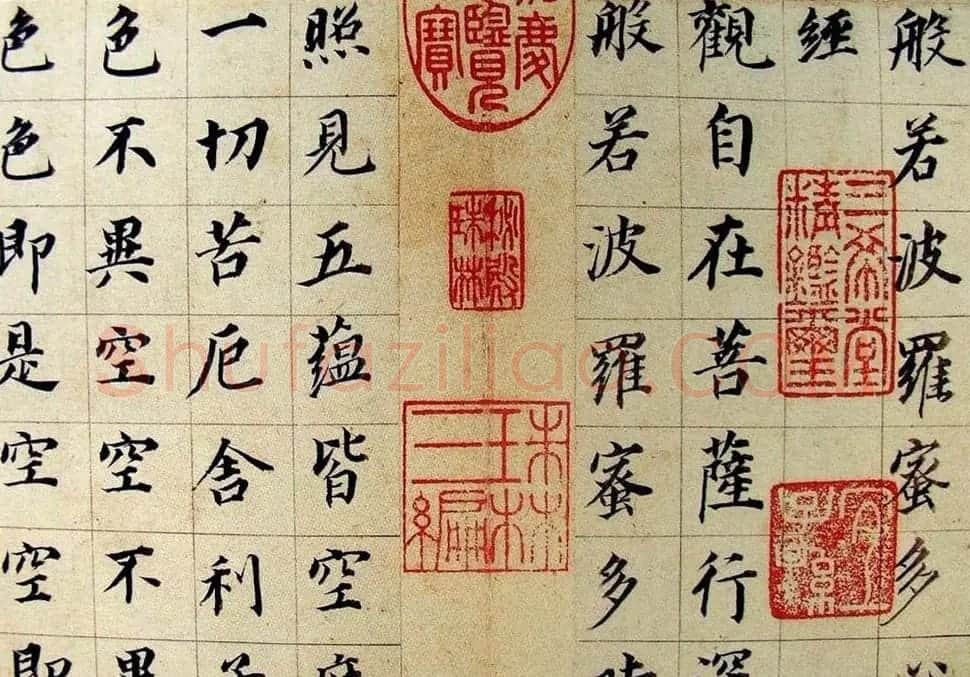 般若波羅蜜多
經
觀自在菩薩行深
般若波羅蜜多時
照見五蘊皆空度
一切苦厄舍利子
色不異空空不異
色色即是空空即
三希堂精鑑璽
秘殿珠林
珠林三編
覽寶